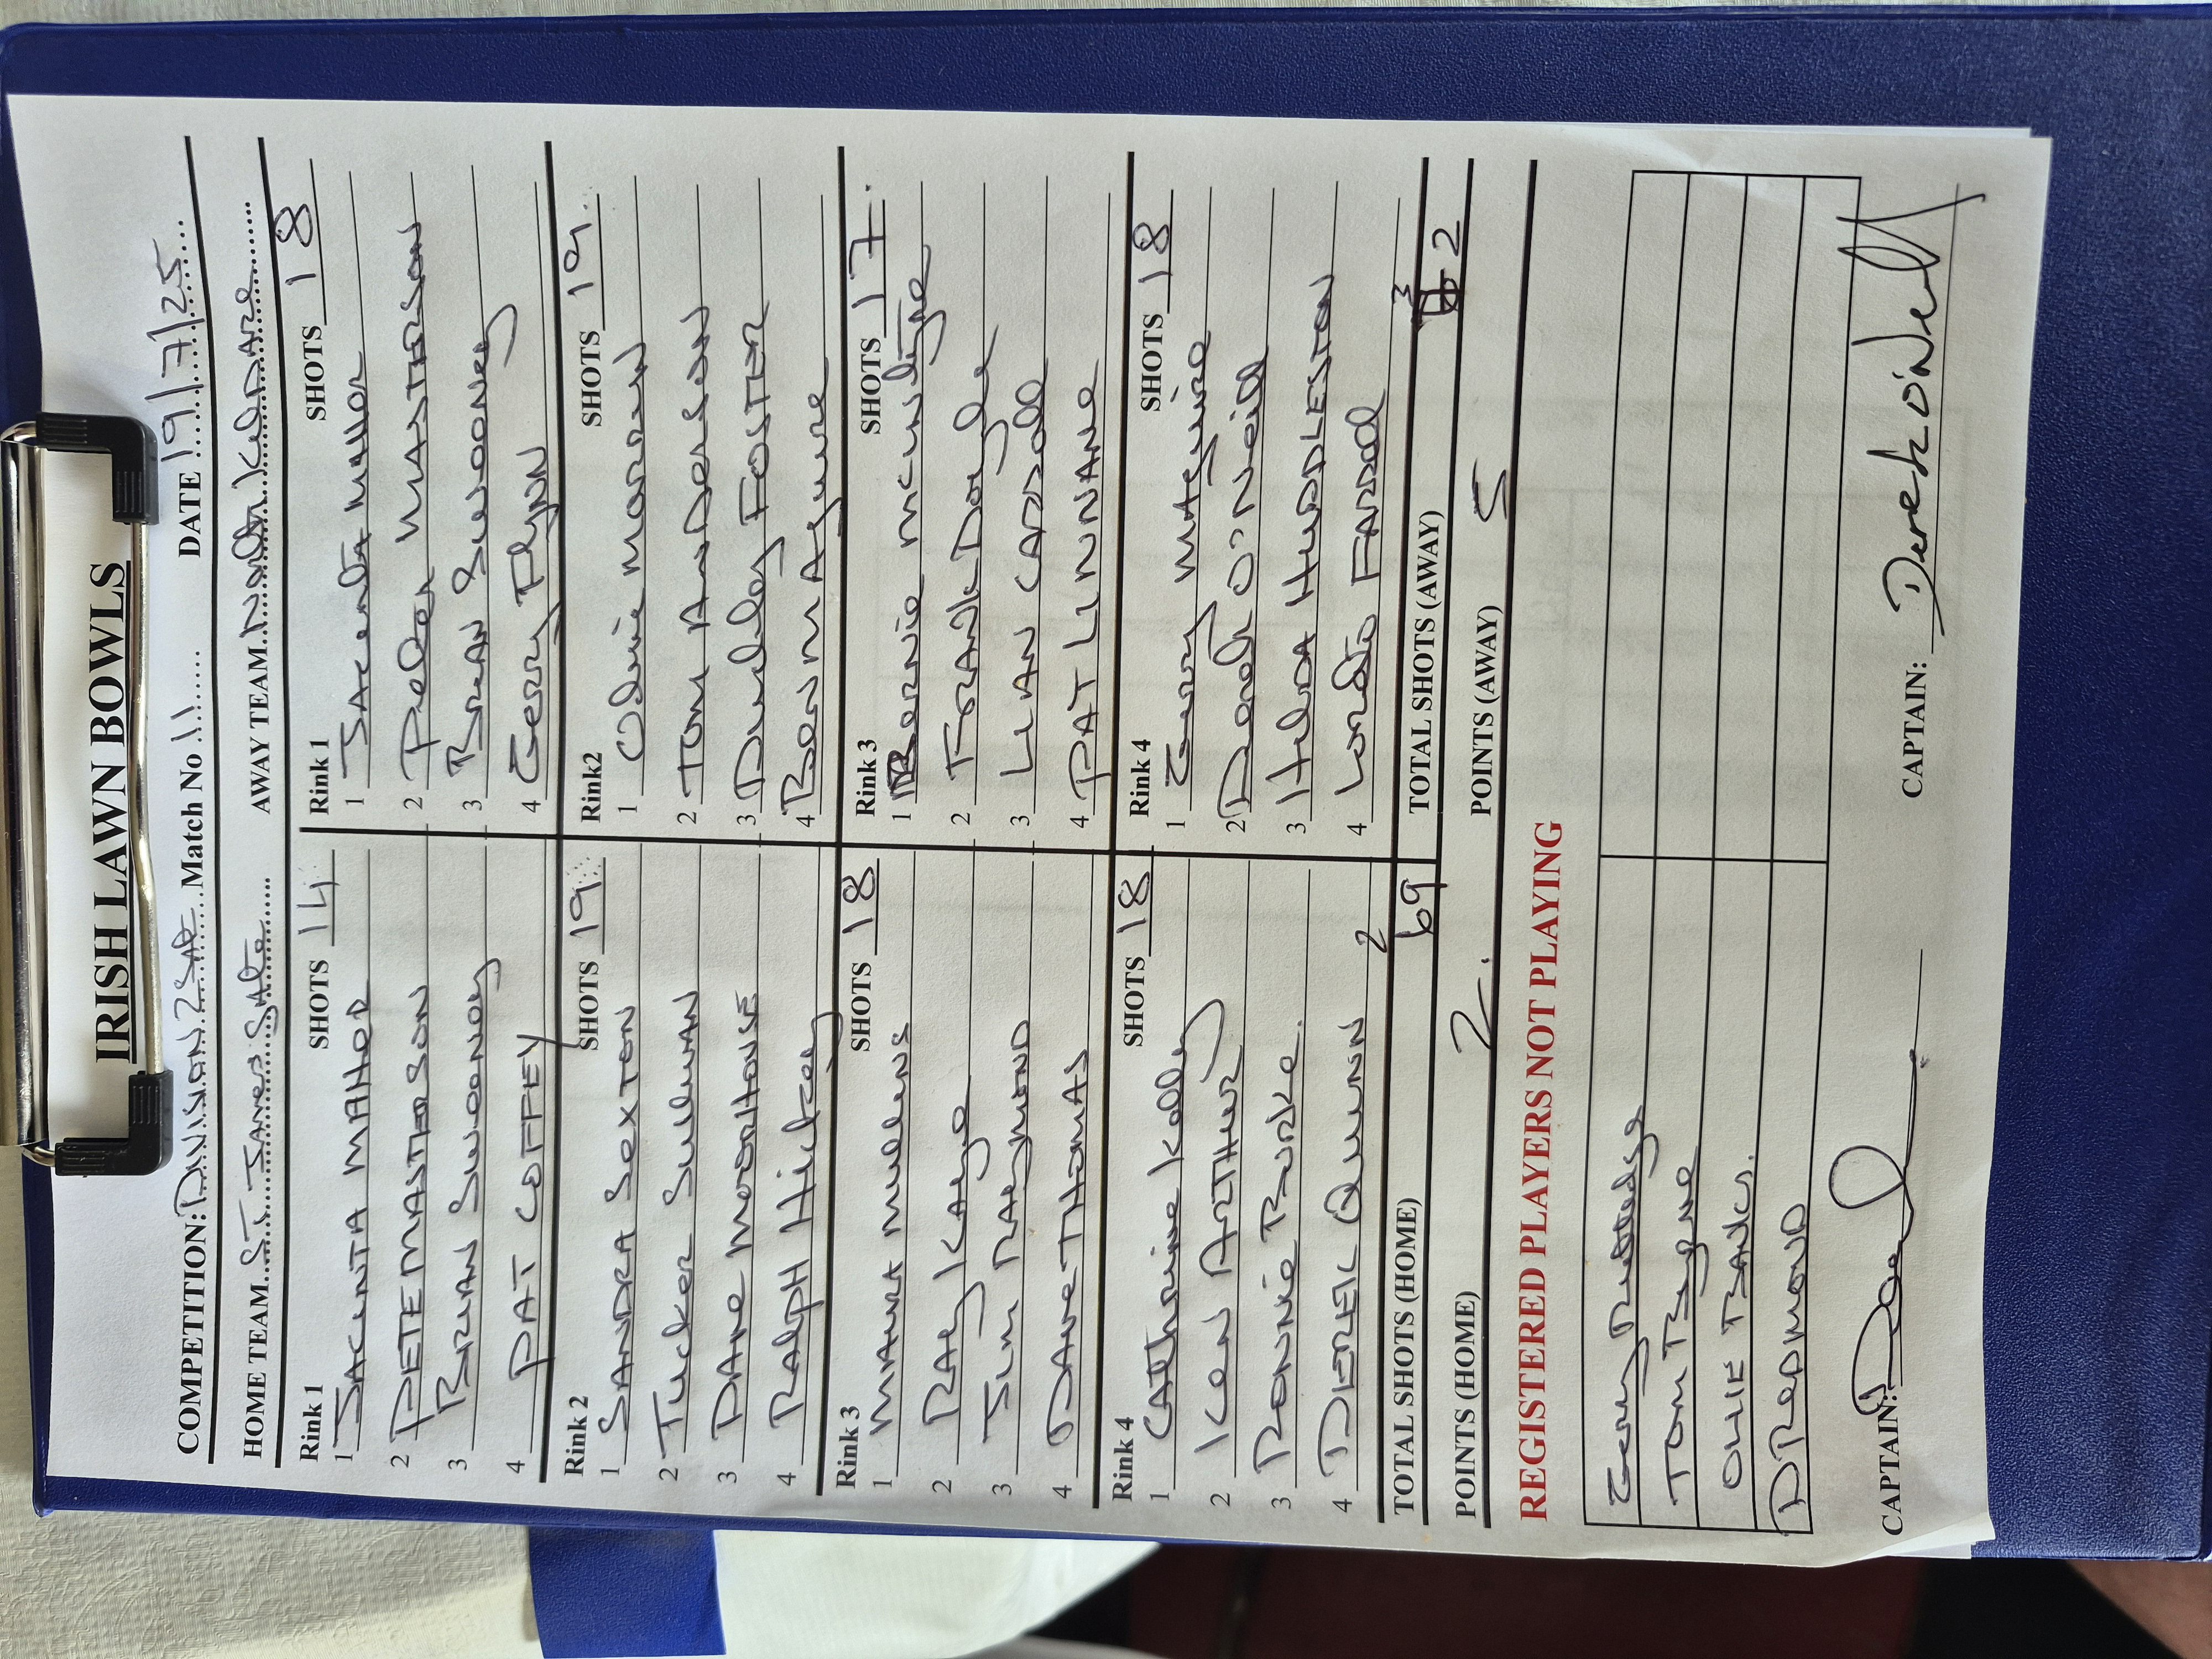 IRISH LAWN BOWLS
COMPETITION: DIVISION 2 SAT Match No 11 DATE 19/7/25
HOME TEAM ST James Gate AWAY TEAM Naas Kildare
Rink 1 SHOTS 14 Rink 1 SHOTS 18
1 JACINTA MAHOR 1 JACENTA MAHOR
2 PETE MASTERSON 2 Peter MASTERSON
3 BRIAN Sweeney 3 Brian Sweeney
4 PAT COFFEY 4 Gerry Flynn
Rink 2 SHOTS 19 Rink2 SHOTS 19
1 SANDRA SEXTON 1
2 Tucker Suliman 2 Tom Anderson
3 Dane MOORHOUSE 3 Dudley FOSTER
4 Ralph Hickey 4 Ben Maguire
Rink 3 SHOTS 18 Rink 3 SHOTS 17
1 MAURA Mullens 1 Bernie
2 RAY KAYE 2 FRANK Doyle
3 Jim RAEYMOND 3 LIAN CARROLL
4 DAVE THOMAS 4 PAT LINNANE
Rink 4 SHOTS 18 Rink 4 SHOTS 18
1 CATHRINE Kelly 1 Gerry MAguire
2 Ken ARTHUR 2 Derek O'Neill
3 RONNIE BURKE 3 HILDA HUDDLESTON
4 DEREK QUINN 4 Loretto FARRELL
2 3
TOTAL SHOTS (HOME) 69 TOTAL SHOTS (AWAY) 2
POINTS (HOME) 2. POINTS (AWAY) 5
REGISTERED PLAYERS NOT PLAYING
Gerry Rutledge
TOM Byrne
OLLIE BANKS.
D REDMOND
CAPTAIN: CAPTAIN: Derek O'Neill